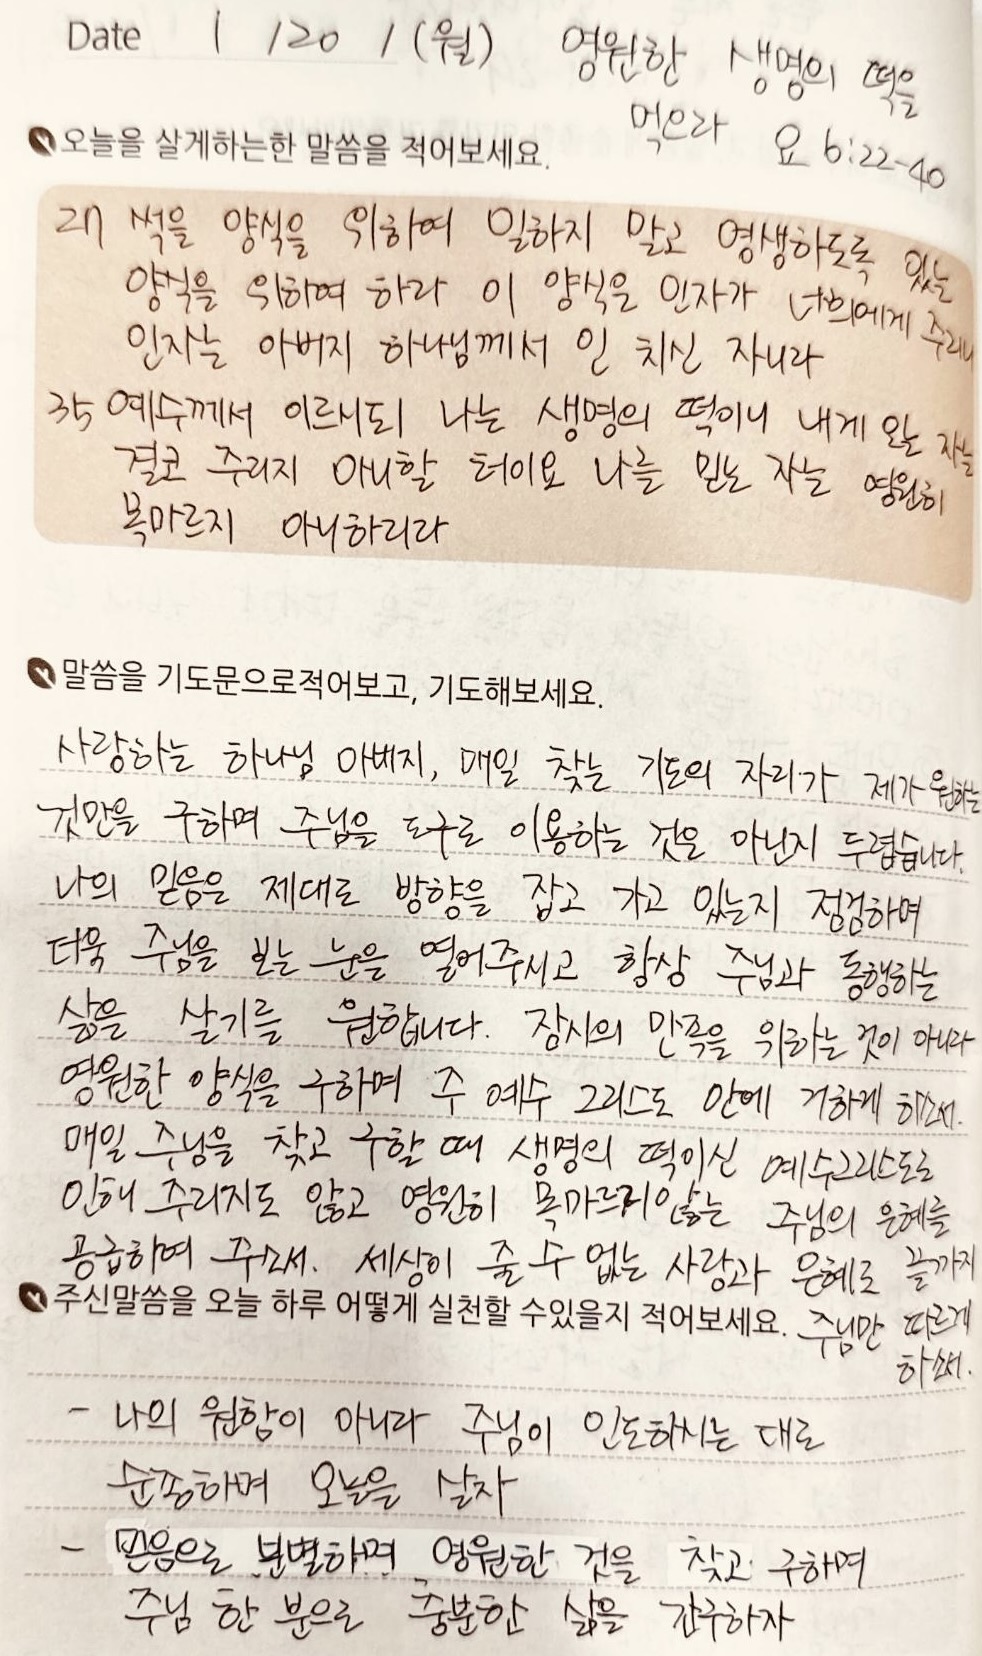 Date 1 /20 / (월) 영원한 생명의 떡을
먹으라 요 6:22-40
오늘을 살게하는한 말씀을 적어보세요.
27 썩을 양식을 위하여 일하지 말고 영생하도록 있는
양식을 위하여 하라 이 양식은 인자가 너희에게 주리니
인자는 아버지 하나님께서 인 치신 자니라
35 예수께서 이르시되 나는 생명의 떡이니 내게 오는 자는
결코 주리지 아니할 터이요 나를 믿는 자는 영원히
목마르지 아니하리라
말씀을 기도문으로적어보고, 기도해보세요.
사랑하는 하나님 아버지, 매일 찾는 기도의 자리가 제가 원하는
것만을 구하며 주님을 도구로 이용하는 것은 아닌지 두렵습니다.
나의 믿음은 제대로 방향을 잡고 가고 있는지 점검하며
더욱 주님을 보는 눈을 열어주시고 항상 주님과 동행하는
삶을 살기를 원합니다. 잠시의 만족을 위하는 것이 아니라
영원한 양식을 구하며 주 예수 그리스도 안에 거하게 하소서.
매일 주님을 찾고 구할 때 생명의 떡이신 예수그리스도로
인해 주리지도 않고 영원히 목마르지않는 주님의 은혜를
공급하여 주소서. 세상이 줄 수 없는 사랑과 은혜로 끝까지
주님만 따르게
하소서.
주신말씀을 오늘 하루 어떻게 실천할 수있을지 적어보세요.
- 나의 원함이 아니라 주님이 인도하시는 대로
순종하며 오늘을 살자
- 믿음으로 분별하며 영원한 것을 찾고 구하며
주님 한 분으로 충분한 삶을 간구하자